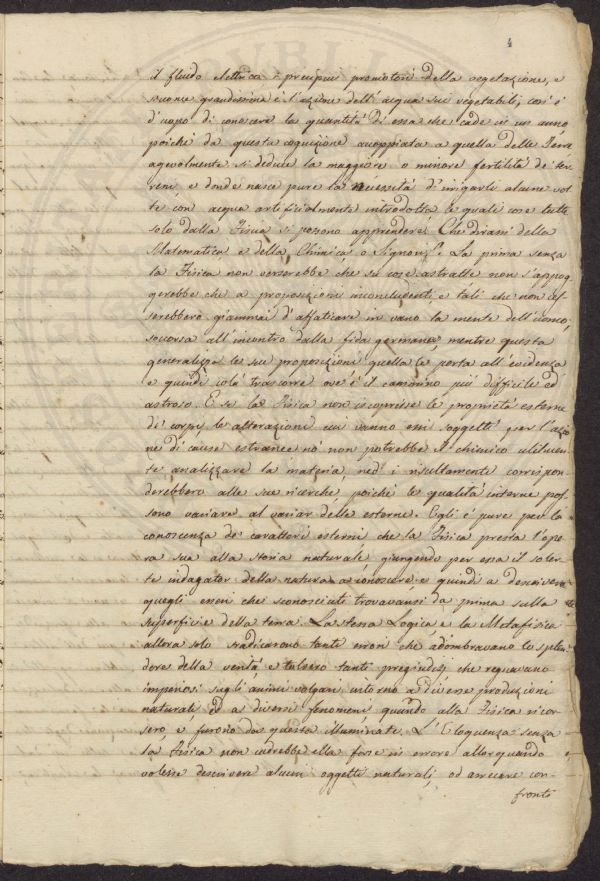 4
il fluido elettrico i precipui promotori della vegetazione, e
siccome grandissima è l'azione dell'acqua sui vegetabili, così è
d'uopo di conoscere la quantità di essa che cade in un anno,
poichè da questa cognizione accoppiata a quella delle Terre
agevolmente si deduce la maggiore o minore fertilità de' ter-
reni, e donde nasce pure la necessità d'irrigarli alcune vol-
te con acqua artificialmente introdotta le quali cose tutte
solo dalla Fisica si possono apprendere. Che dirassi della
Matematica e della Chimica o Signori? La prima senza
la Fisica non verserebbe che su cose astratte non s'appog-
gerebbe che a proposizioni inconcludenti, e tali che non ces-
serebbero giammai d'affaticare in vano la mente dell'uomo;
soccorsa all'incontro dalla fida germana mentre questa
generalizza le sue proposizioni quella le porta all'evidenza
e quindi colà trascorre ove è il cammino più difficile ed
astroso. E se la Fisica non iscoprisse le proprietà esterne
di corpi, le alterazioni cui vanno essi soggetti per l'azio-
ne di cause estranee nò non potrebbe il chimico utilmen-
te analizzare la materia, ned i risultamenti corrispon-
derebbero alle sue ricerche, poichè le qualità interne pos-
sono variare al variar delle esterne. Egli è pure per la
conoscenza de' caratteri esterni che la Fisica presta l'ope-
ra sua alla storia naturale giungendo per essa il soler-
te indagator della natura a conoscere, e quindi a descrivere
quegli esseri che sconosciuti trovavansi da prima sulla
superficie della terra. La stessa Logica, e la Metafisica
allora solo sradicarono tanti errori che adombravano lo splen-
dore della verità, e tolsero tanti pregiudizj che regnavano
imperiosi sugli animi volgari intorno a diverse produzioni
naturali, ed a diversi fenomeni quando alla Fisica ricor-
sero, e furono da questa illuminate. L'Eloquenza senza
la Fisica non cadrebbe ella forse in errore allorquando
volesse descrivere alcuni oggetti naturali, od arrecare con-
fronti